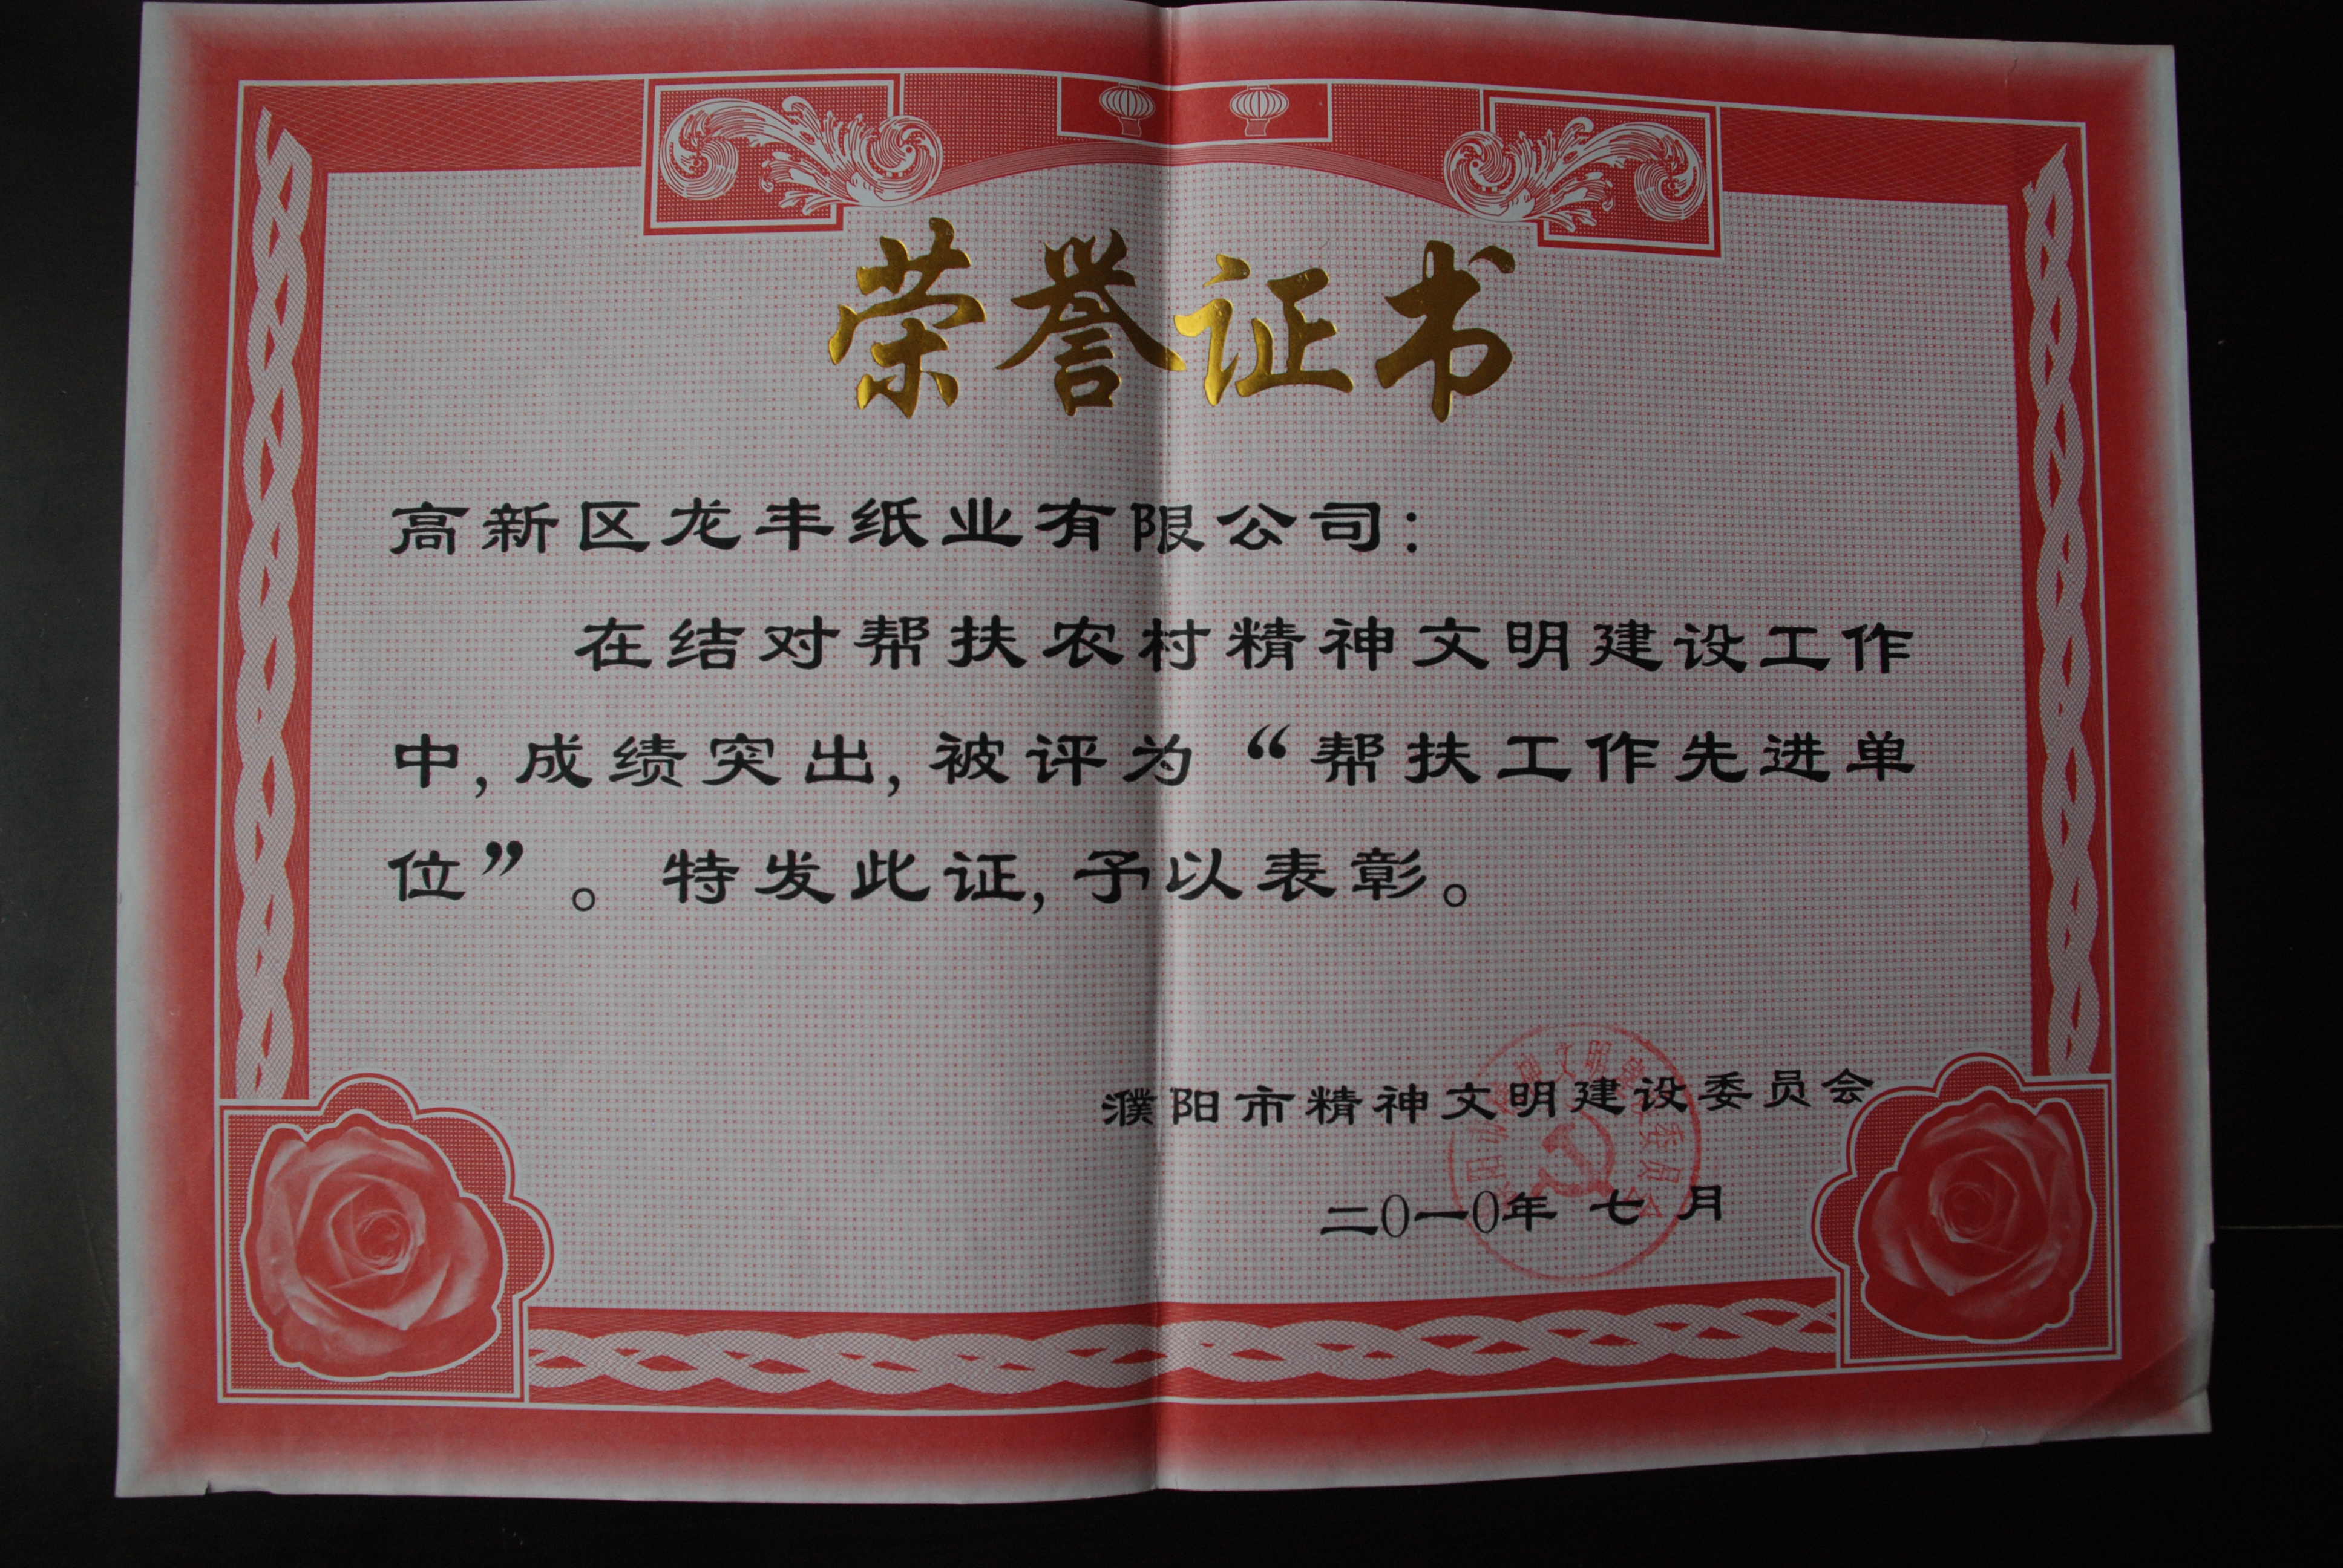 荣誉证书
高新区龙丰纸业有限公司：
在结对帮扶农村精神文明建设工作
中，成绩突出，被评为“帮扶工作先进单
位”。特发此证，予以表彰。
濮阳市精神文明建设委员会
二〇一〇年 七 月